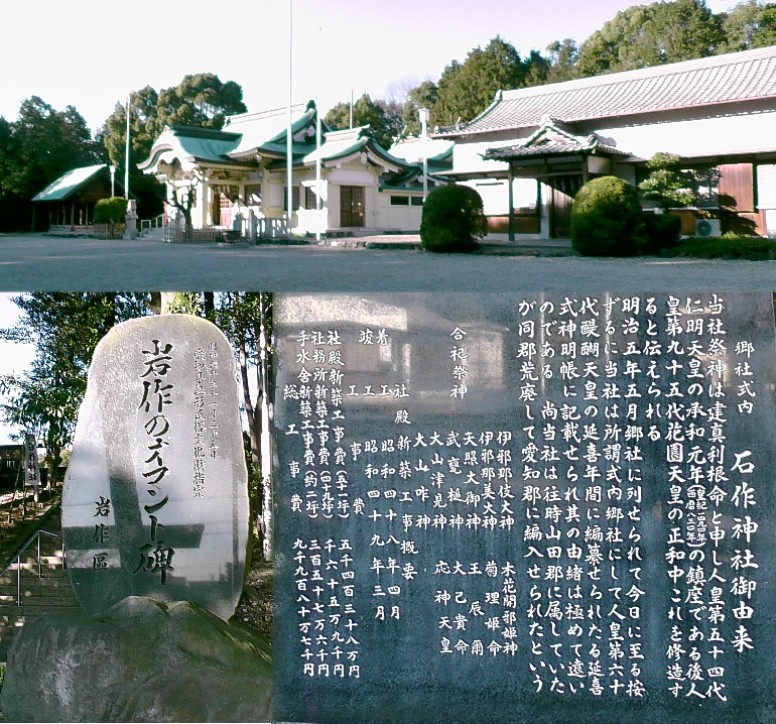 郷社式内 石作神社御由来
当社祭神は建真利根命と申し人皇第五十四代
仁明天皇の承和元年の鎮座である後人
皇第九十五代花園天皇の正和中これを修造す
ると伝えられる
明治五年五月郷社に列せられて今日に至る按
ずるに当社は所謂式内郷社にして人皇第六十
代醍醐天皇の延喜年間に編纂せられたる延喜
式神明帳に記載せられ其の由緒は極めて遠い
のである 尚当社は往時山田郡に属していた
が同郡荒廃して愛知郡に編入せられたという
合祀祭神
伊邪那伎大神 木花開邪姫神
伊邪那美大神 菊理姫命
天照大御神 王辰爾
武甕槌神 大己貴命
大山津見神 応神天皇
大山咋神
社殿新築工事概要
着工 昭和四十八年四月
竣工 昭和四十九年三月
社殿新築工事費(五十一坪) 五千四百三十八万円
社務所新築工事費(四十九坪) 千六百五十万九千円
手水舎新築工事費(約二坪) 三百五十七万六千円
総工事費 九千九百八十万七千円
岩作のオマント碑
岩作區